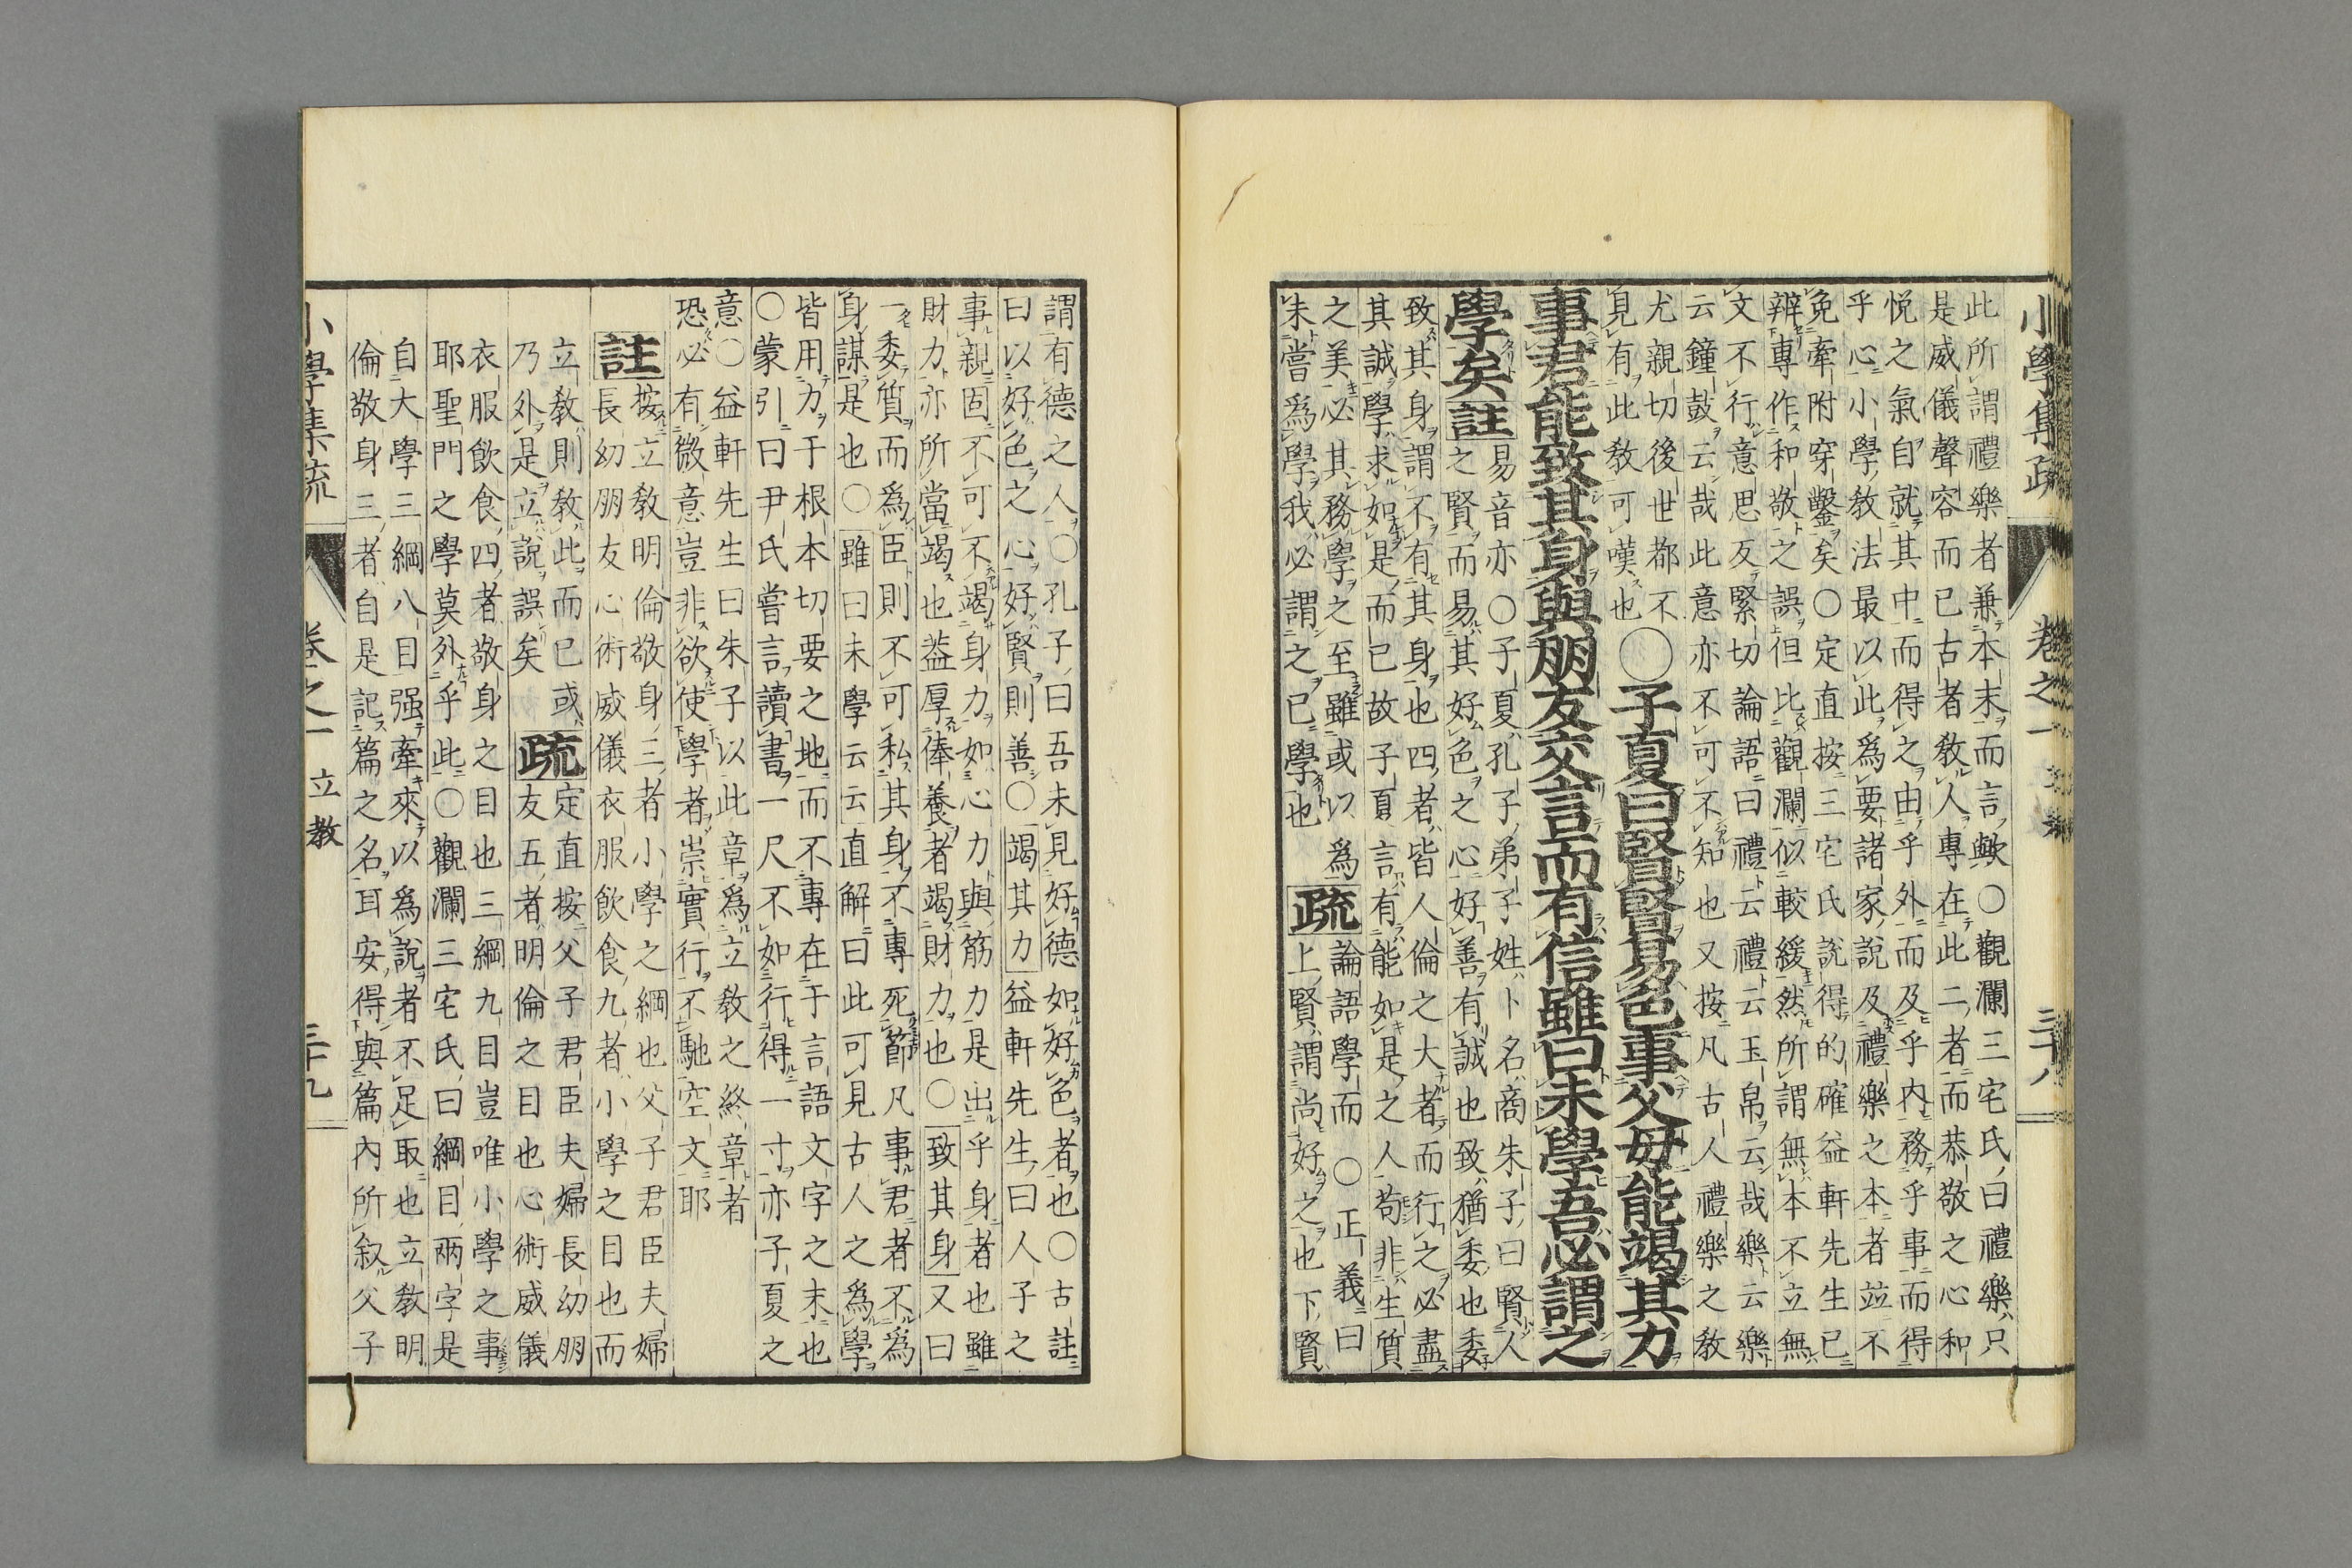 小學集疏 卷之一 三十八
此所謂禮樂者兼本末而言歟〇觀瀾三宅氏曰禮樂只
是威儀聲容而已古者敎人專在此二者而恭敬之心和
悅之氣自就其中而得之由乎外而及乎內務乎事而得
乎心小學敎法最以此爲要諸家說及禮樂之本者竝不
免牽附穿鑿矣〇定直按三宅氏說得的確益軒先生已
辨專作和敬之誤但比觀瀾似較緩然所謂無本不立無
文不行意思反緊切論語曰禮云禮云玉帛云哉樂云樂
云鐘鼓云哉此意亦不可不知也又按凡古人禮樂之敎
尤親切後世都不
見有此敎可嘆也
〇子夏曰賢賢易色事父母能竭其力
事君能致其身與朋友交言而有信雖曰未學吾必謂之
學矣
註 易音亦〇子夏孔子弟子姓卜名商朱子曰賢人
之賢而易其好色之心好善有誠也致猶委也委
致其身謂不有其身也四者皆人倫之大者而行之必盡
其誠學求如是而已故子夏言有能如是之人苟非生質
之美必其務學之至雖或以爲
未嘗爲學我必謂之已學也
疏 論語學而〇正義曰
上賢謂尚好之也下賢
謂有德之人〇孔子曰吾未見好德如好色者也〇古註
曰以好色之心好賢則善〇竭其力益軒先生曰人子之
事親固不可不竭身力如心力與筋力是出乎身者也雖
財力亦所當竭也益厚俸養者竭財力也〇致其身又曰
一委質而爲臣則不可私其身不專死節凡事君者不爲
身謀是也〇雖曰未學云云直解曰此可見古人之爲學
皆用力于根本切要之地而不專在于言語文字之末也
〇蒙引曰尹氏嘗言讀書一尺不如行得一寸亦子夏之
意〇益軒先生曰朱子以此章爲立敎之終章者
恐必有微意豈非欲使學者崇實行不馳空文耶
註 按立敎明倫敬身三者小學之綱也父子君臣夫婦
長幼朋友心術威儀衣服飲食九者小學之目也而
立敎則敎此而已或
乃外是立說誤矣
疏 定直按父子君臣夫婦長幼朋
友五者明倫之目也心術威儀
衣服飲食四者敬身之目也三綱九目豈唯小學之事
耶聖門之學莫外乎此〇觀瀾三宅氏曰綱目兩字是
自大學三綱八目强牽來以爲說者不足取也立敎明
倫敬身三者自是記篇之名耳安得與篇內所叙父子
小學集疏 卷之一 立教 三十九